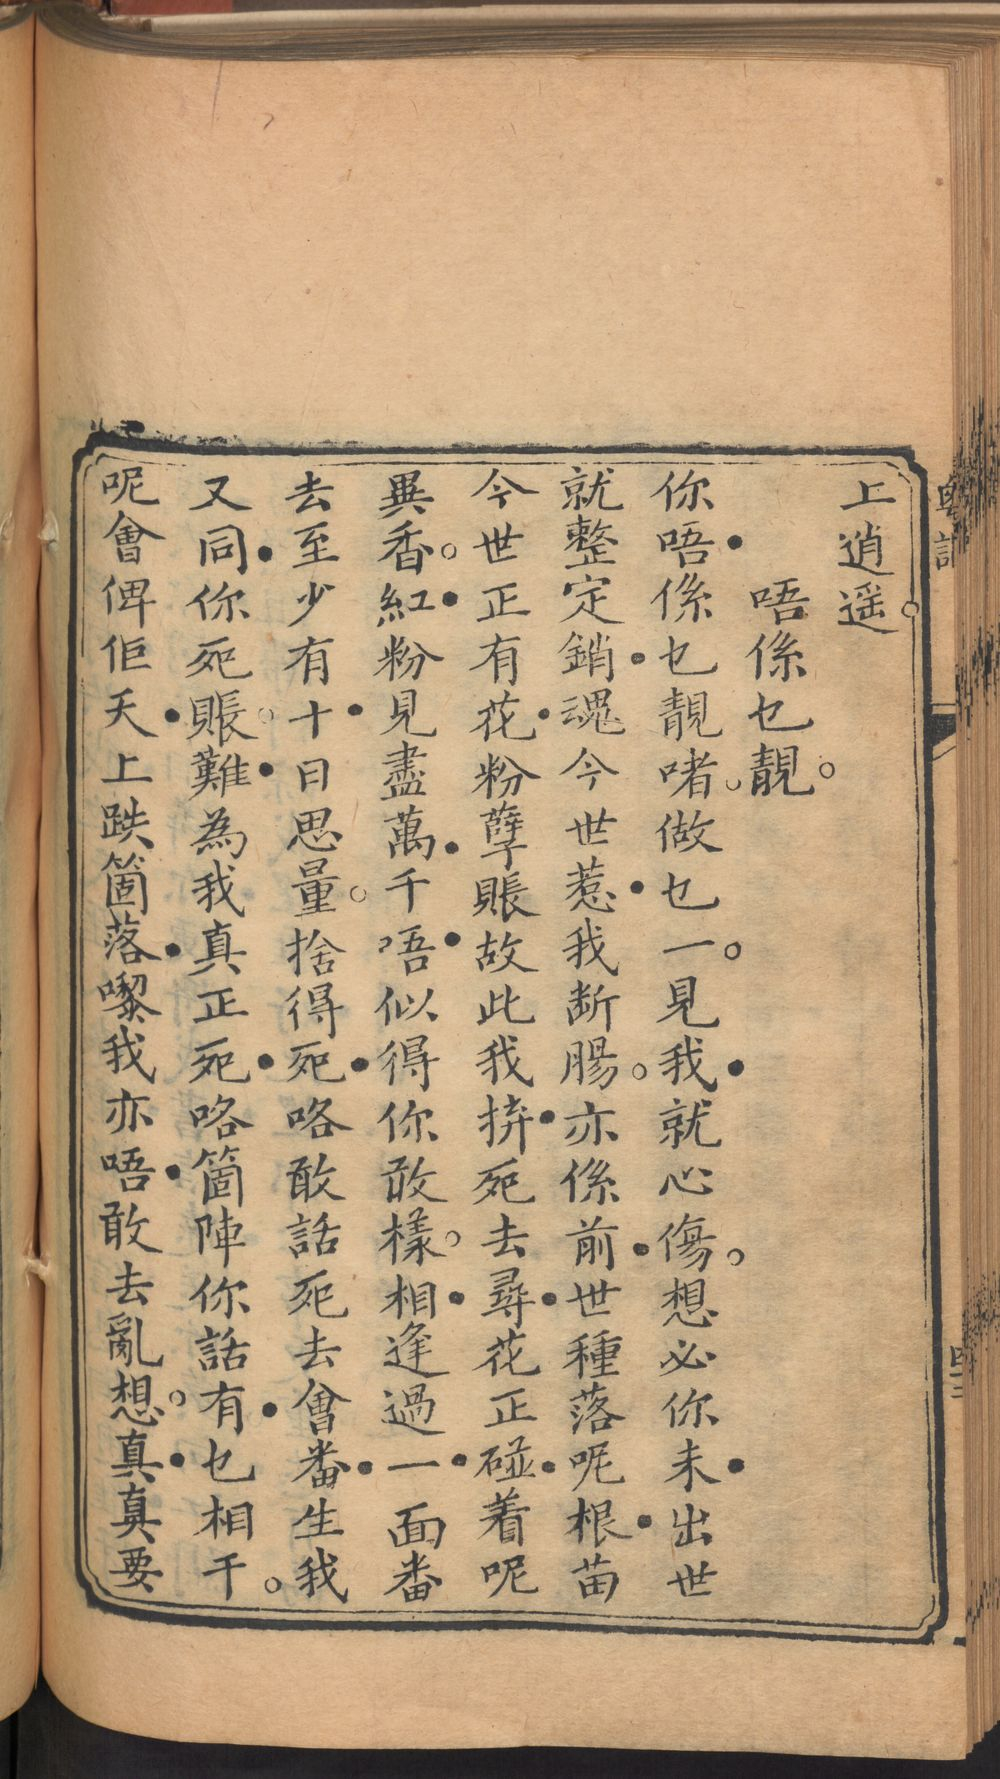 上逍遥。
唔係乜靚。
你唔係乜靚啫。做乜一見我就心傷。想必你未出世
就整定銷魂今世惹我断腸。亦係前世種落呢根苗
今世正有花粉孽賬故此我拚死去尋花正碰着呢
異香。紅粉見盡萬千唔似得你敢樣。相逢過一面番
去至少有十日思量。捨得死咯敢話死去會番生我
又同你死賬。難為我真正死咯箇陣你話有乜相干。
呢會俾佢天上跌箇落嚟我亦唔敢去亂想。真真要